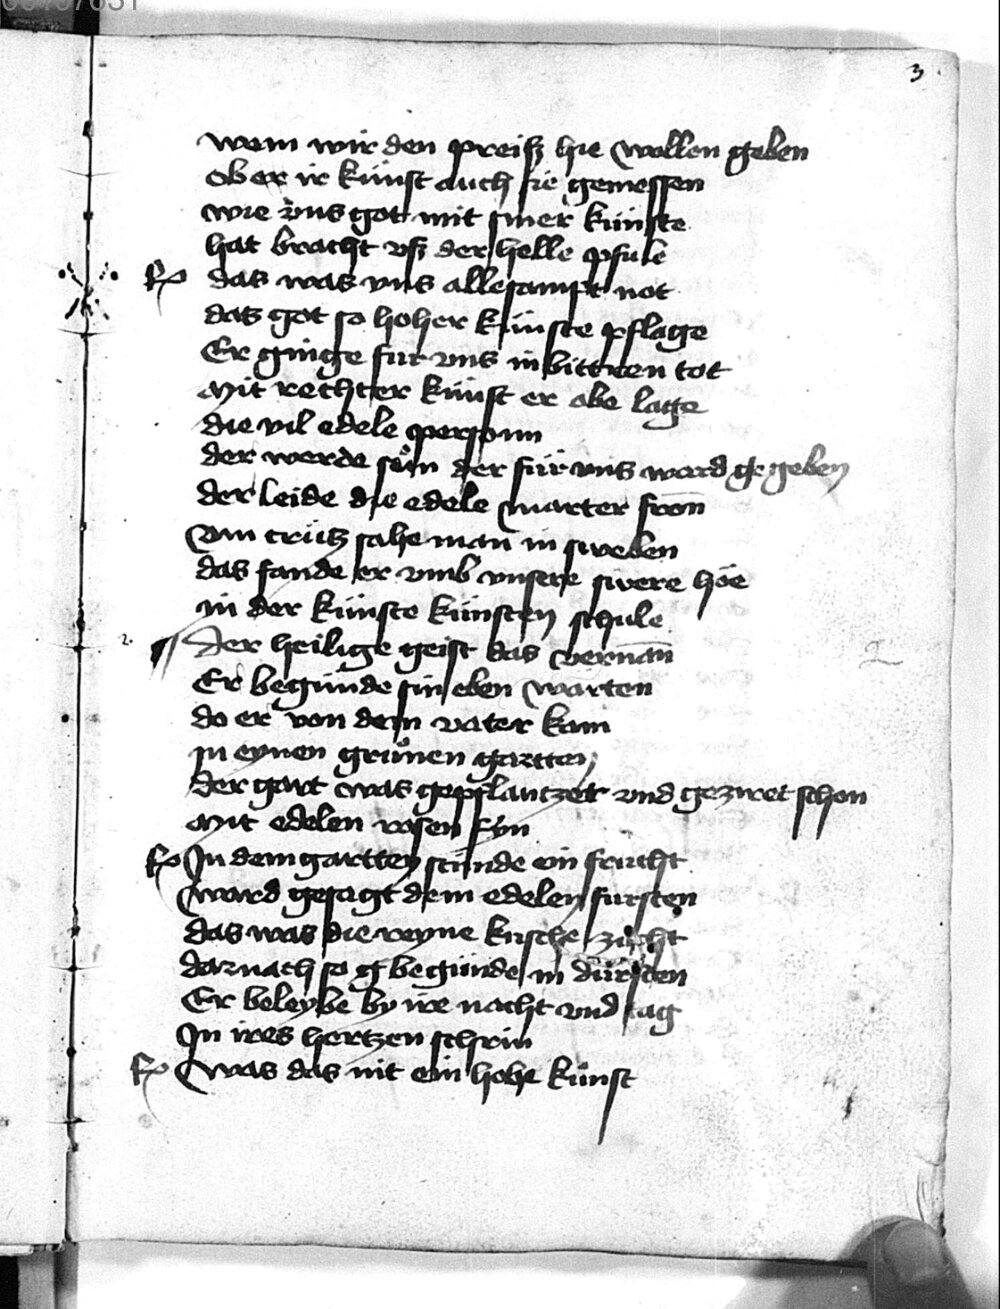 3
wem wir den preiß hie wollen geben
ob er ir kúnst auch sie gemessen
wie vns got mit siner kúnste
hat bracht vß der helle pfule
das was vns allesampt not
das got so hoher kúnste pflage
Er ginge fur vns in bittren tot
Mit rechter kúnst er obe lage
die vil edele person
der werde sůn der fúr vns ward gegeben
der leide die edele marter fron
am crútz sahe man in sweben
das fande er vmb vnsere swere höe
in der kúnste kúnsten schule
2.
Der heilige geist das vernam
Er begúnde sin eben warten
do er von dem vater kam
jn eynen grůnen gartten
der gart was gepflantzet vnd gezwret schon
Mit edelen rosen fyn
In dem gartten stúnde ein frucht
ward gesagt dem edelen fursten
das was die reyne kusche zucht
darnach so begúnde in dúrsten
Er beleybe by ire nacht vnd tag
In ires hertzen schrin
Was das nit ein hohe kůnst